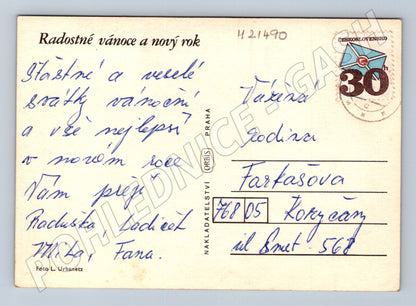 Radostné vánoce a nový rok
H21490
Šťastné a veselé
svátky vánoční
a vše nejlepší
v novém roce
Vám přejí
Raduška, Ladíček
Míla, Fana.
Foto L. Urbánek
NAKLADATELSTVÍ ORBIS PRAHA
30h
Vážená
rodina
Farkašova
768 05 Koryčany
ul Smet. 568
POHLEDNICE - GASH